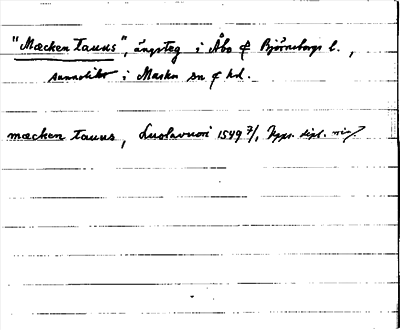 "Mæcken tauus", ängsteg i Åbo & Björneborgs l.,
sannolikt i Masku sn & hd.
mæcken tauus, Luslavuori 1549 7/1, Kgsr. dipl.